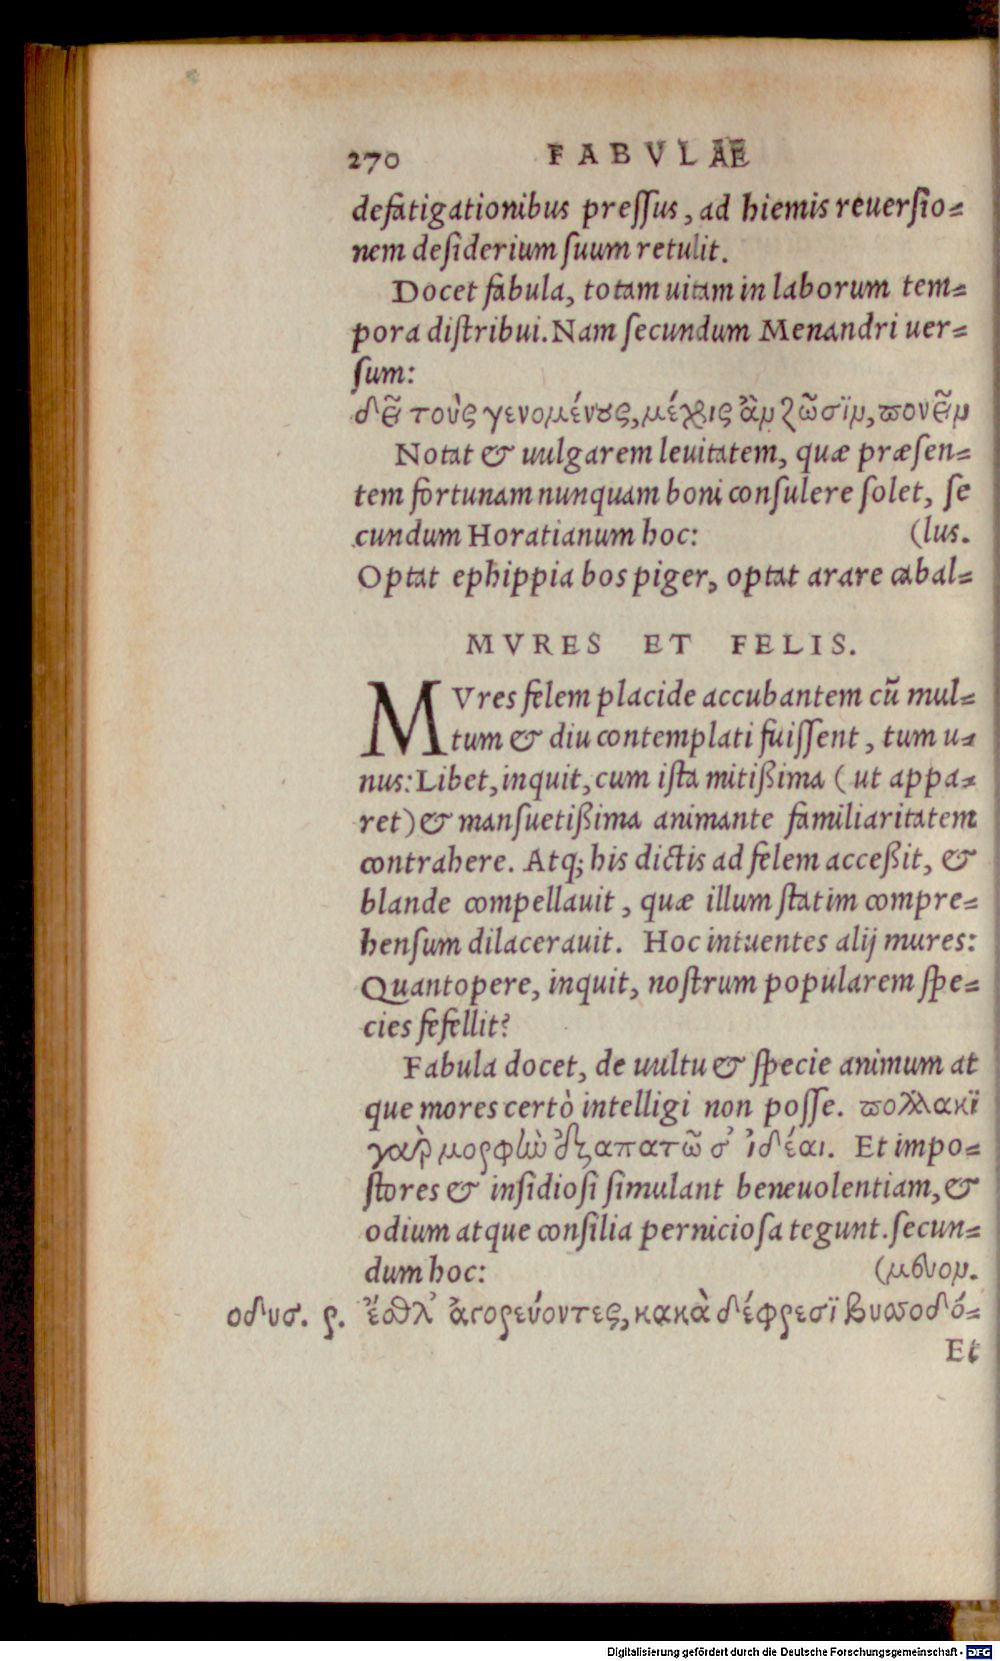 270 FABVLAE
defatigationibus preſſus, ad hiemis reuerſio=
nem deſiderium ſuum retulit.
Docet fabula, totam uitam in laborum tem=
pora diſtribui. Nam ſecundum Menandri uer=
ſum:
δεῖ τοὺς γενομένους, μέχρις ἂν ζῶσιν, πονεῖν
Notat & uulgarem leuitatem, quæ præſen=
tem fortunam nunquam boni conſulere ſolet, ſe
cundum Horatianum hoc: (lus.
Optat ephippia bos piger, optat arare cabal=
MVRES ET FELIS.
MVres felem placide accubantem cũ mul=
tum & diu contemplati fuiſſent, tum u=
nus: Libet, inquit, cum iſta mitißima (ut appa=
ret) & manſuetißima animante familiaritatem
contrahere. Atq; his dictis ad felem acceßit, &
blande compellauit, quæ illum ſtatim compre=
henſum dilacerauit. Hoc intuentes alij mures:
Quantopere, inquit, noſtrum popularem ſpe=
cies fefellit?
Fabula docet, de uultu & ſpecie animum at
que mores certò intelligi non poſſe. πολλάκι
γαὸρ μορφὼ ἐξαπατῶσ' ἰδέαι. Et impo=
ſtores & inſidioſi ſimulant beneuolentiam, &
odium atque conſilia pernicioſa tegunt. ſecun=
dum hoc: (μευον.
οδυσ. ρ. ἔσθλ' ἀγορεύοντες, κακὰ δέ φρεσὶ βυσσοδό=
Et
Digitalisierung gefördert durch die Deutsche Forschungsgemeinschaft - DFG